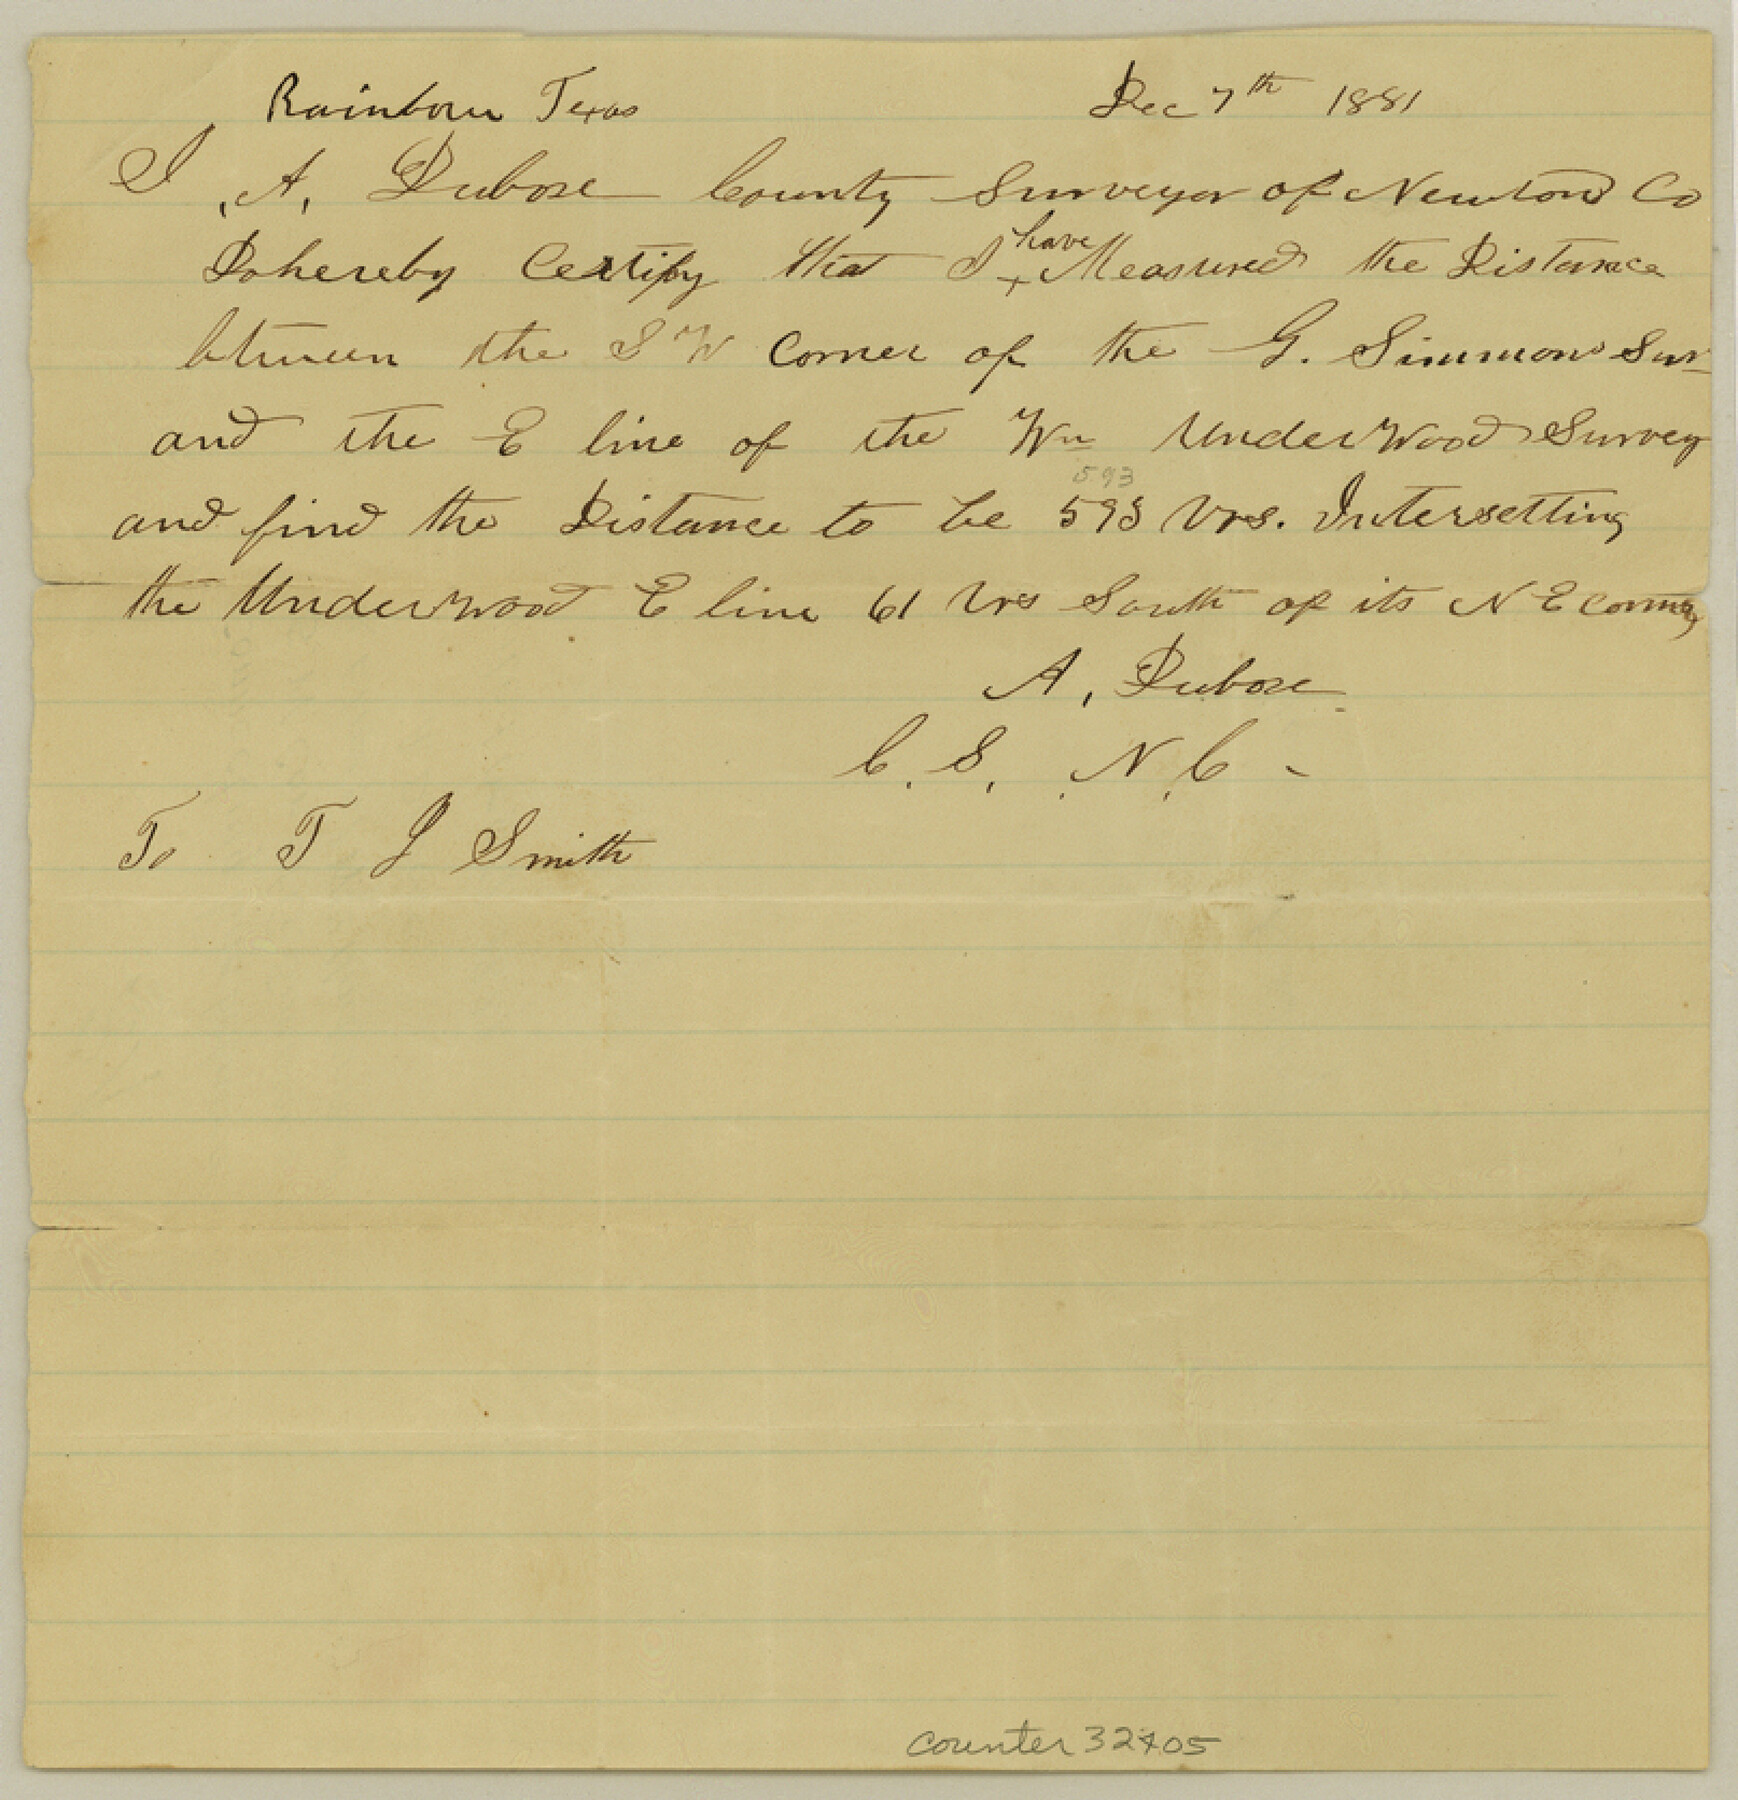 Rainbow Texas Dec 7th 1881
I, A, Dubose County Surveyor of Newton Co
Dohereby Certify that I have Measured the Distance
btween the S W Corner of the G. Simmons Sur
and the E line of the Wm UnderWood Survey
593
and find the Distance to be 593 Vrs. Intersetting
the Underwood E line 61 Vrs South of its N E Corner,
A, Dubose
C. S, N, C -
To T J Smith
counter 32405